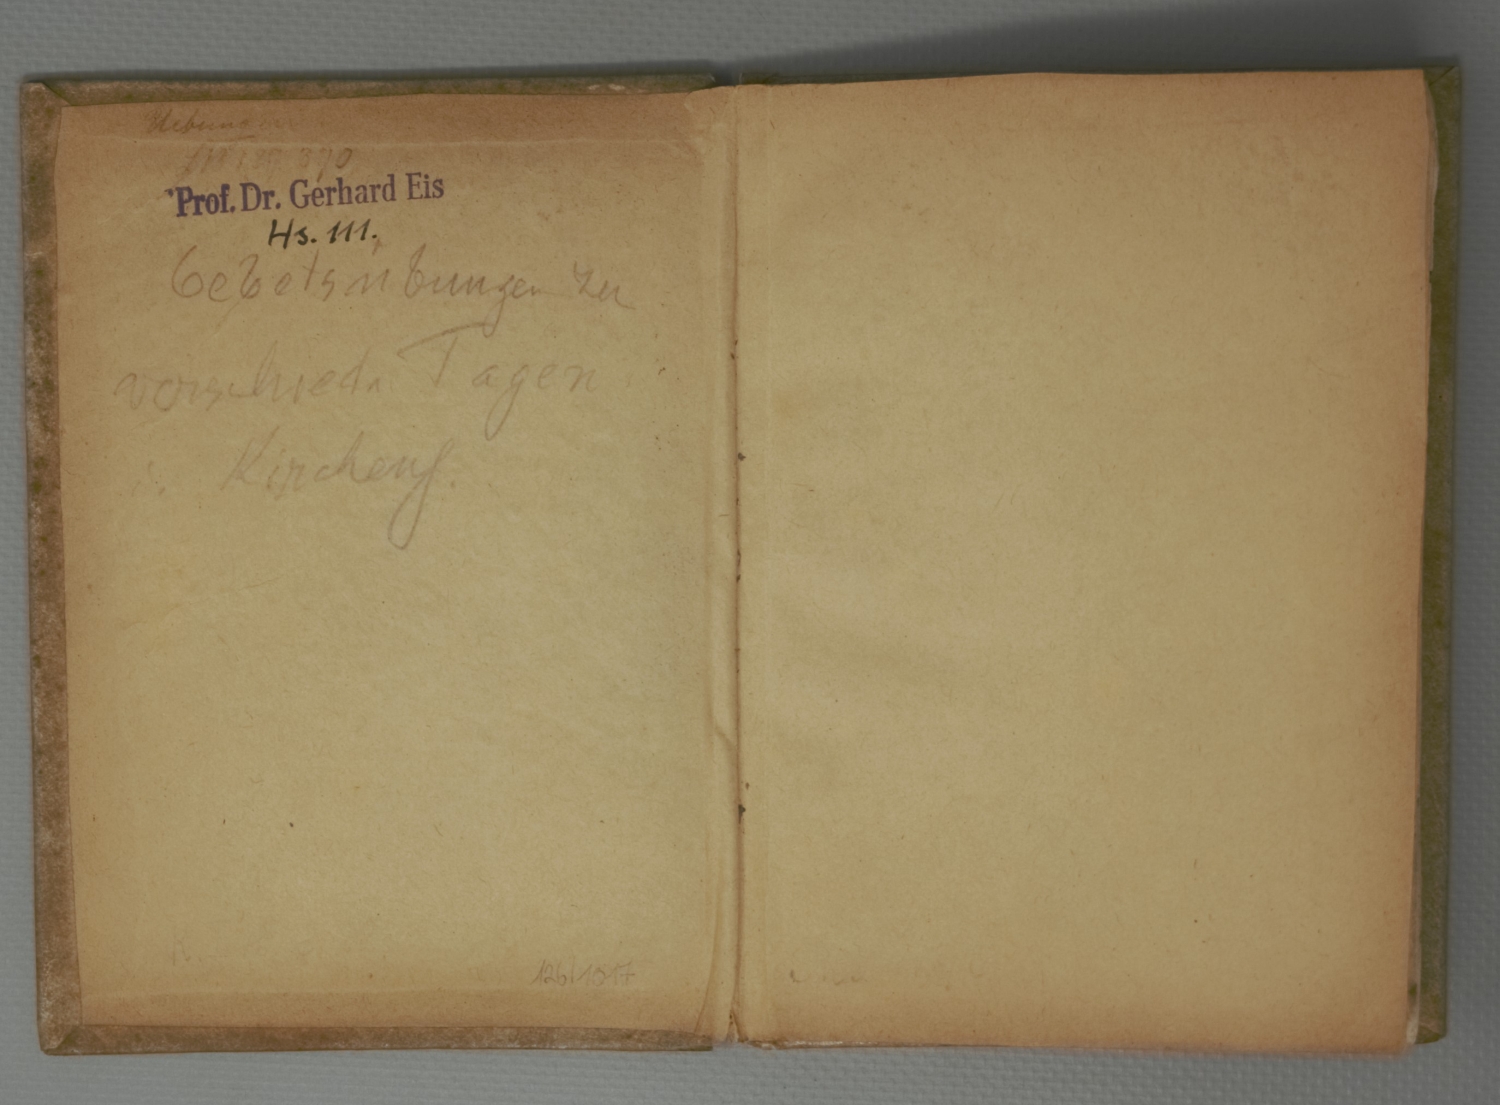 Prof. Dr. Gerhard Eis
Hs. 111.
Gebetsübungen zu
verschied. Tagen
i. Kirchenj.
126/1017